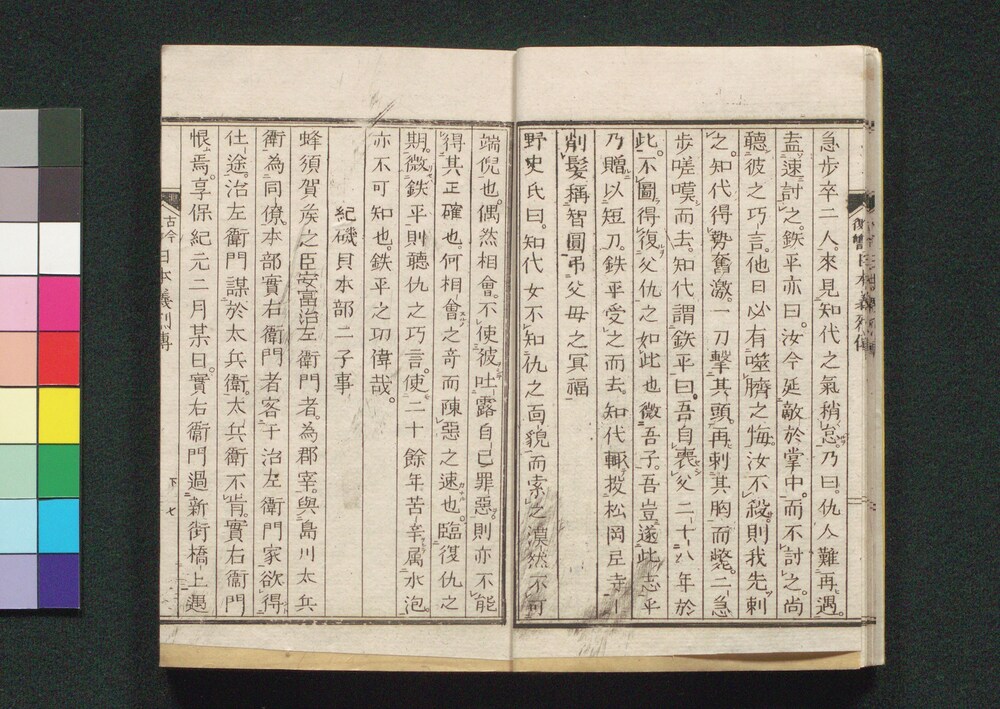 急歩卒二人。來見知代之氣稍怠。乃曰。仇人難再遇。
盍速討之。鉄平亦曰。汝今延敵於掌中。而不討之。尚
聽彼之巧言。他日必有噬臍之悔。汝不殺。則我先刺
之。知代得勢奮激。一刀擊其頭。再刺其胸而斃。二急
歩嗟嘆而去。知代謂鉄平曰。吾自喪父二十八年於
此。不圖得復父仇之如此也。微吾子。吾豈遂此志乎
乃贈以短刀。鉄平受之而去。知代輙投松岡尼寺
削髮稱智圓弔父毋之冥福
野史氏曰。知代女不知仇之面貌而索之。漠然不可
端倪也。偶然相會。不使彼吐露自己罪惡。則亦不能
得其正確也。何相會之竒而陳惡之速也。臨復仇之
期。微鉄平則聽仇之巧言。使二十餘年苦辛属水泡
亦不可知也。鉄平之功偉哉。
紀磯貝本部二子事
蜂須賀矦之臣安富治左衛門者。為郡宰。與島川太兵
衛為同僚。本部實右衛門者客于治左衛門家欲得
仕途。治左衛門謀於太兵衛。太兵衛不肯。實右衛門
恨焉。享保紀元二月某日。實右衛門過新街橋上遇
古今日本義烈傳
下
七